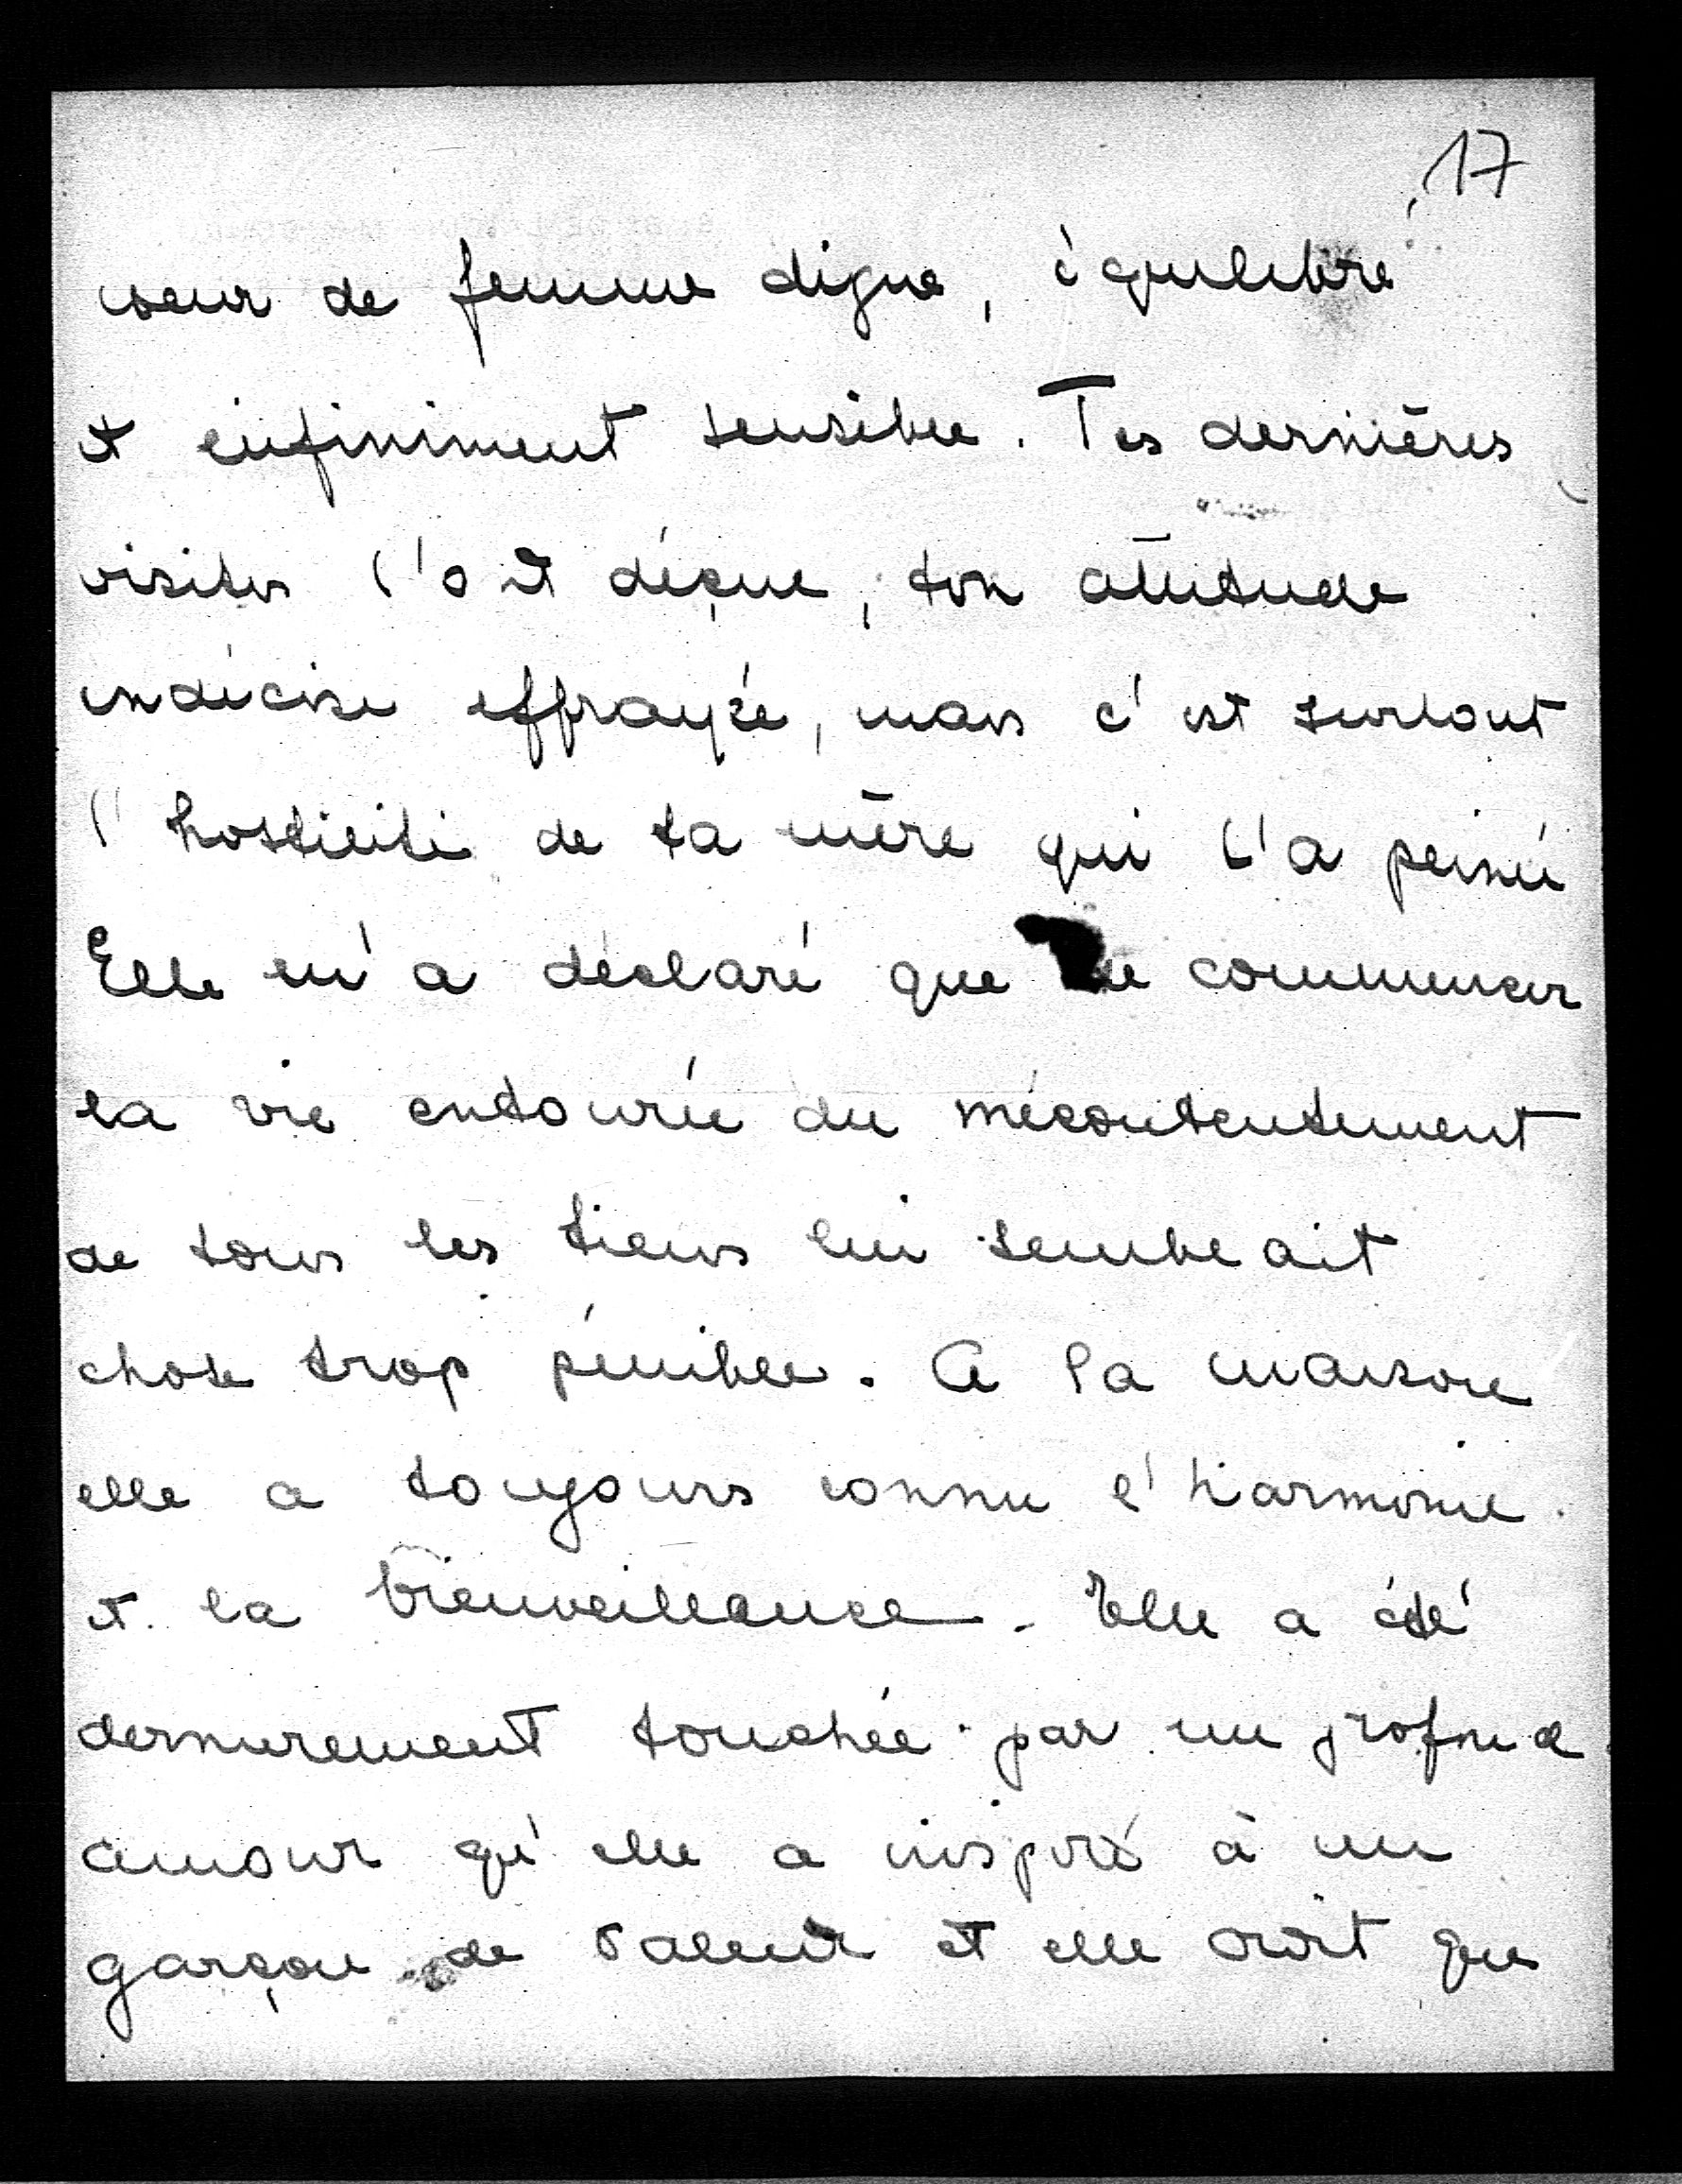 17
coeur de femme digne, équilibré
et infiniment sensible. Tes dernières
visites l'ont déçue, ton attitude
indécise effrayée, mais c'est surtout
l'hostilité de ta mère qui l'a peinée
Elle m'a déclaré que de commencer
la vie entourée du mécontentement
de tous les tiens lui semblait
chose trop pénible. A la maison
elle a toujours connu l'harmonie
et la bienveillance. Elle a été
dernièrement touchée par un profond
amour qu'elle a inspiré à un
garçon de valeur et elle croit que